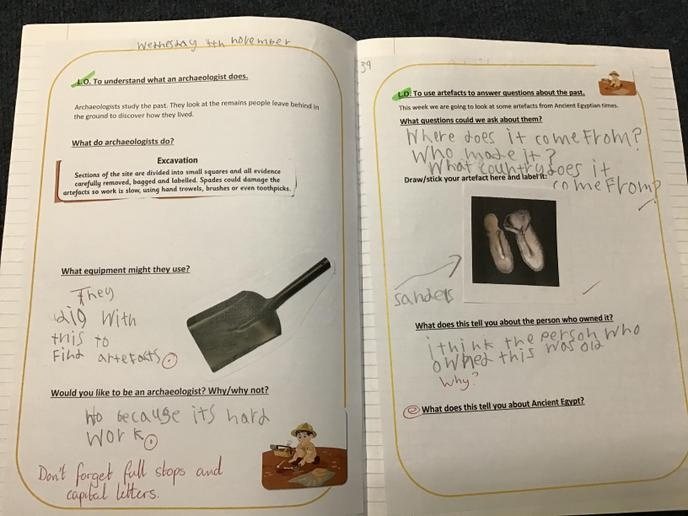 Wednesday 4th november
L.O. To understand what an archaeologist does.
Archaeologists study the past. They look at the remains people leave behind in
the ground to discover how they lived.
What do archaeologists do?
Excavation
Sections of the site are divided into small squares and all evidence
carefully removed, bagged and labelled. Spades could damage the
artefacts so work is slow, using hand trowels, brushes or even toothpicks.
What equipment might they use?
They
dig with
this to
Find artefacts.
Would you like to be an archaeologist? Why/why not?
No because its hard
work.
Don't forget full stops and
capital letters.
L.O. To use artefacts to answer questions about the past.
This week we are going to look at some artefacts from Ancient Egyptian times.
What questions could we ask about them?
Where does it come From?
Who made it?
What country does it
come From?
Draw/stick your artefact here and label it:
Sanders
What does this tell you about the person who owned it?
i think the person who
owned this was old
Why?
What does this tell you about Ancient Egypt?